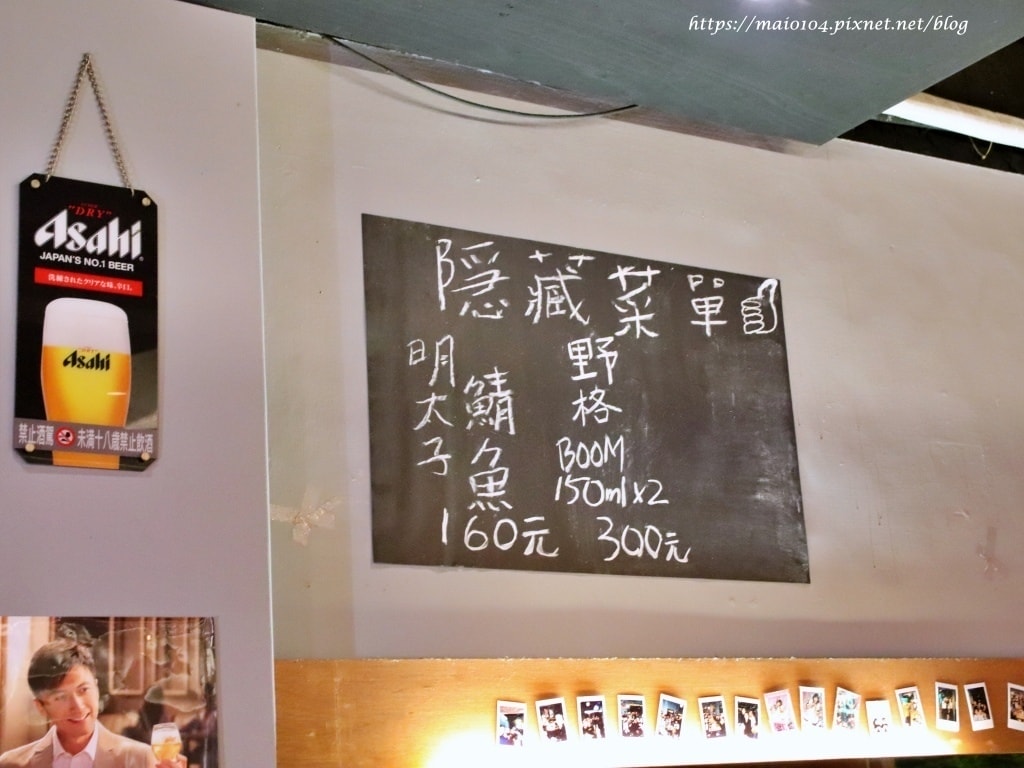 https://maio104.pixnet.net/blog
"DRY"
Asahi
JAPAN'S NO.1 BEER
洗練されたクリアな味、辛口。
"DRY"
Asahi
禁止酒駕 未滿十八歲禁止飲酒
隱藏菜單
明太子
鯖魚
160元
野格
BOOM
150ml x2
300元